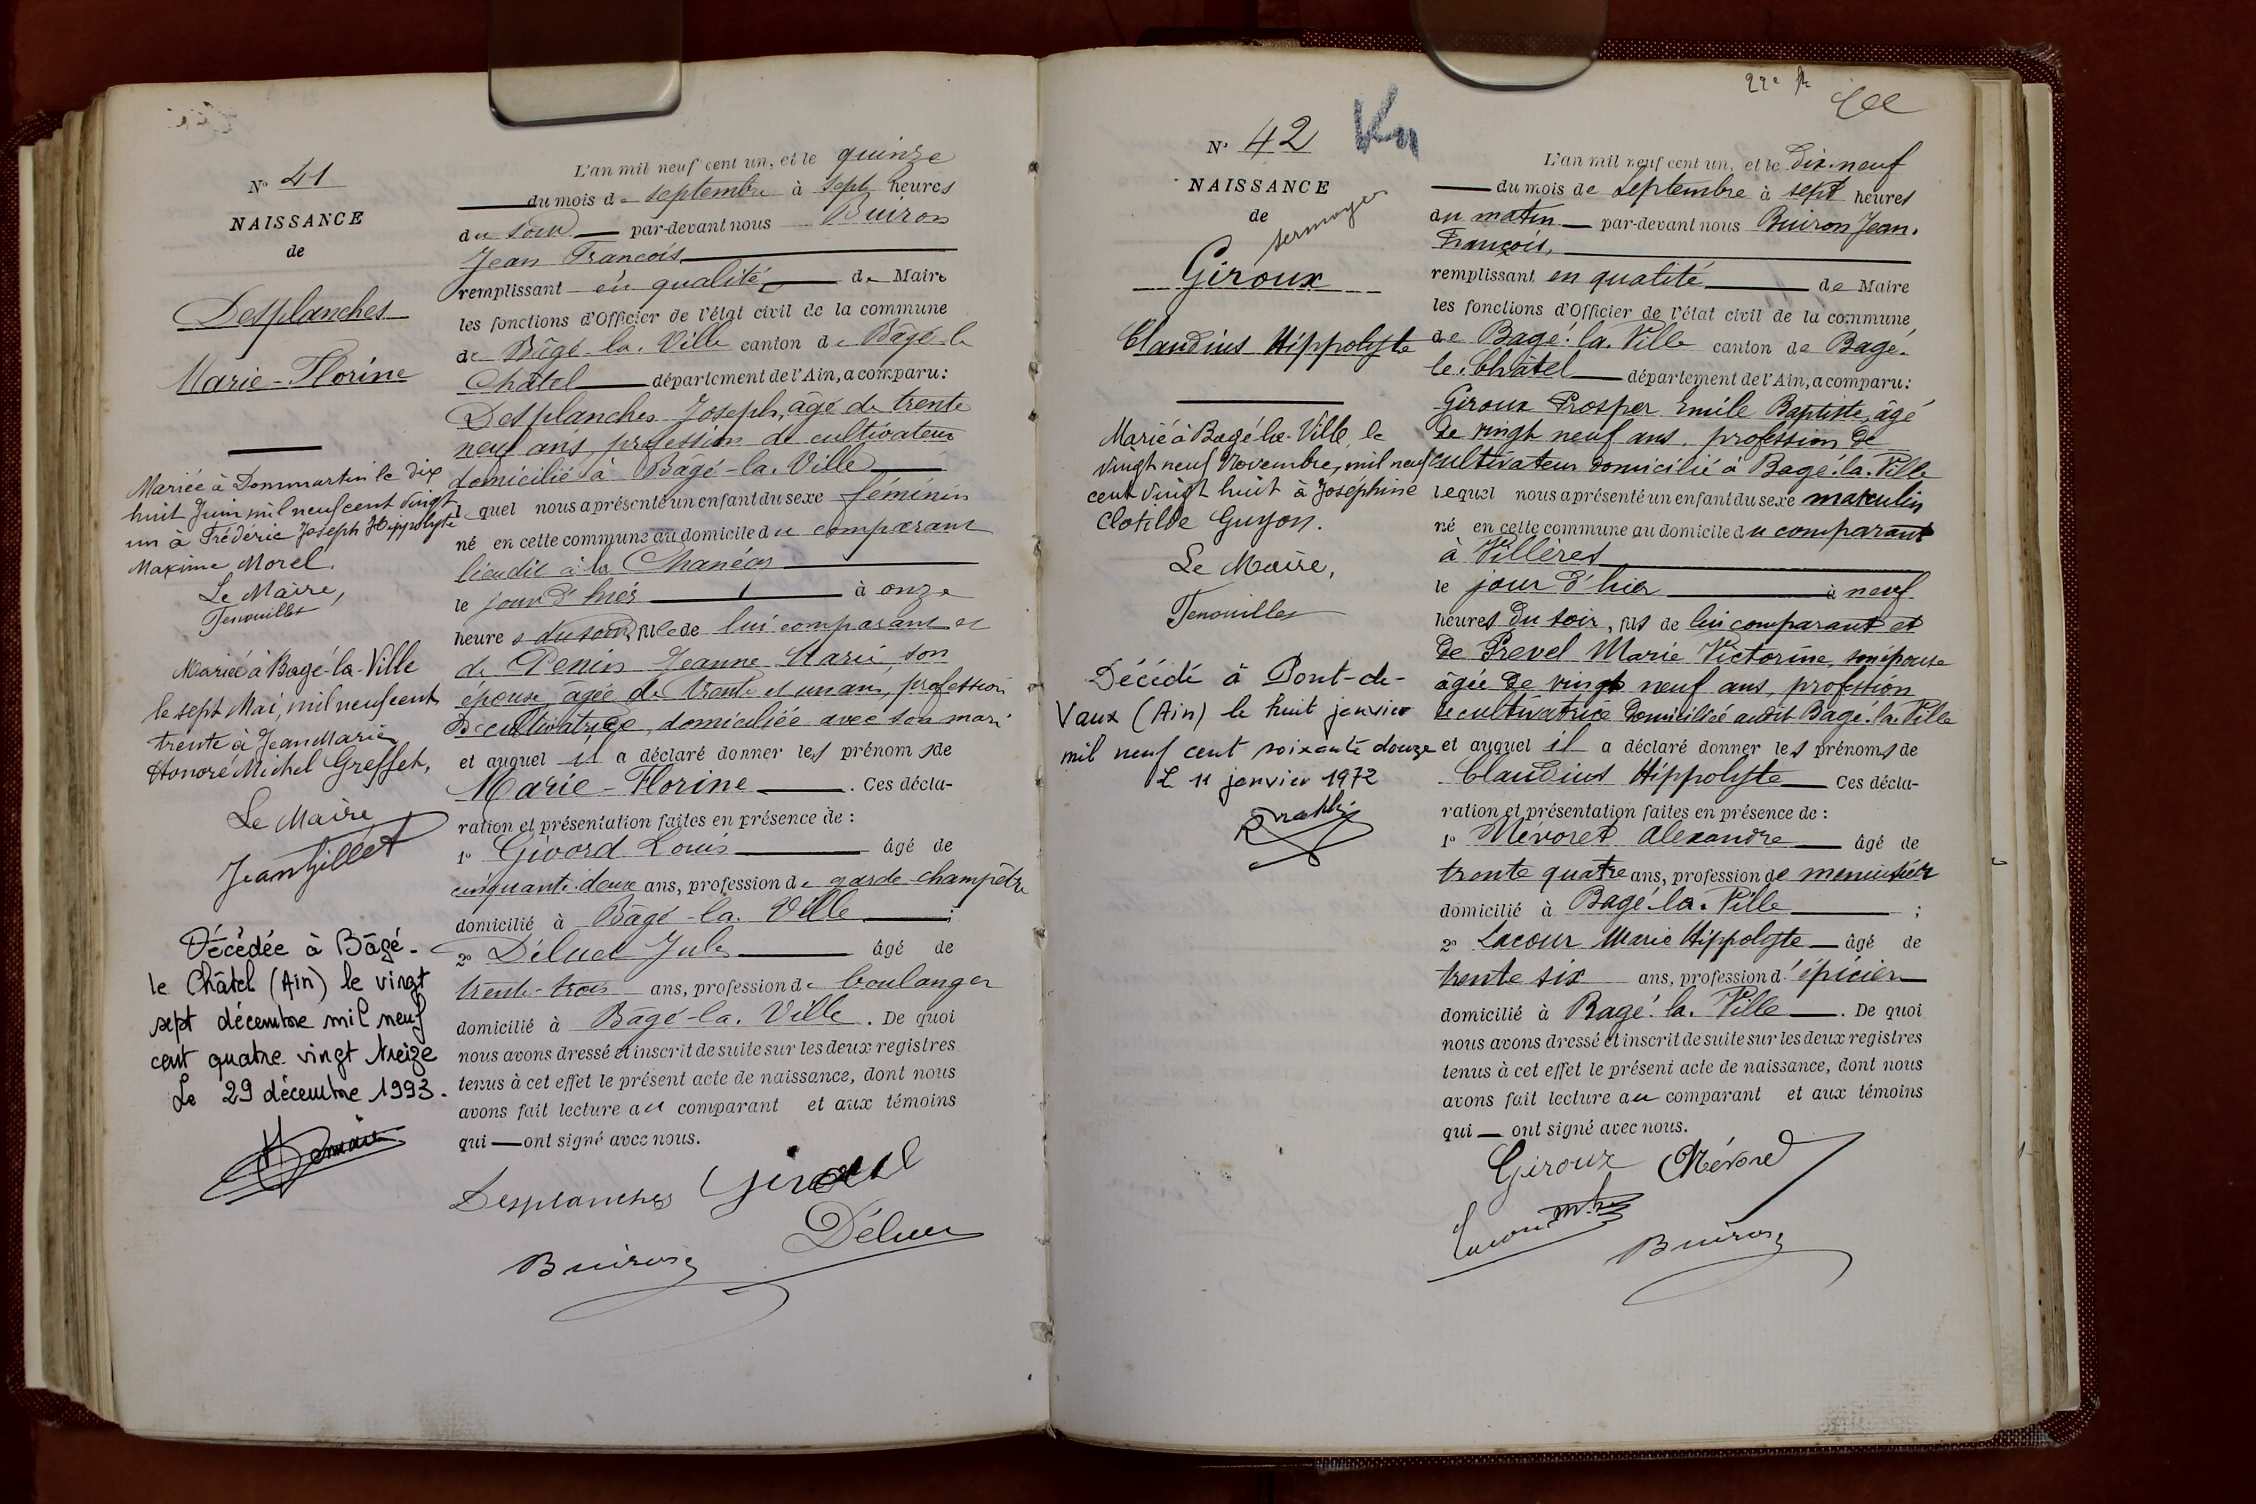 N° 41
NAISSANCE
de
Desplanches
Marie-Florine
Mariée à Dommartin le dix
huit Juin mil neuf cent vingt
un à Frédéric Joseph Hippolyte
Maxime Morel.
Le Maire,
Tenouillet
Mariée à Bagé-la-Ville
le sept Mai, mil neuf cent
trente à Jean Marie
Honoré Michel Greffet,
Le Maire
Jean Gillet
Décédée à Bâgé-
le Châtel (Ain) le vingt
sept décembre mil neuf
cent quatre vingt treize
Le 29 décembre 1993.
L'an mil neuf cent un, et le quinze
du mois de septembre à sept heures
du soir par-devant nous Buiron
Jean François
remplissant en qualité de Maire
les fonctions d'Officier de l'état civil de la commune
de Bâgé-la-Ville canton de Bâgé-le
Châtel département de l'Ain, a comparu:
Desplanches Joseph, âgé de trente
neuf ans, profession de cultivateur
domicilié à Bâgé-la-Ville
lequel nous a présenté un enfant du sexe féminin
né en cette commune au domicile du comparant
lieudit à la
le jour d'hier à onze
heures du soir, fille de lui comparant et
de Penin Jeanne Marie, son
épouse âgée de trente et un ans, profession
de cultivatrice, domiciliée avec son mari
et auquel il a déclaré donner les prénoms de
Marie-Florine. Ces décla-
ration et présentation faites en présence de :
1° Givord Louis âgé de
cinquante-deux ans, profession de garde-champêtre
domicilié à Bâgé-la-Ville ;
2° Déluet Jules âgé de
trente-trois ans, profession de boulanger
domicilié à Bâgé-la-Ville. De quoi
nous avons dressé et inscrit de suite sur les deux registres
tenus à cet effet le présent acte de naissance, dont nous
avons fait lecture au comparant et aux témoins
qui ont signé avec nous.
Desplanches Givord
Déluet
Buiron
N° 42
NAISSANCE
de
sermoyer
Giroux
Claudius Hippolyte
Marié à Bagé-la-Ville, le
vingt neuf Novembre, mil neuf
cent vingt huit à Joséphine
Clotilde Guyon.
Le Maire,
Tenouillet
Décédé à Pont-de-
Vaux (Ain) le huit janvier
mil neuf cent soixante douze
Le 11 janvier 1972
L'an mil neuf cent un, et le Dix-neuf
du mois de septembre à sept heures
du matin par-devant nous Buiron Jean-
François,
remplissant en qualité de Maire
les fonctions d'Officier de l'état civil de la commune
de Bagé-la-Ville canton de Bagé-
le-Châtel département de l'Ain, a comparu:
Giroux Prosper Emile Baptiste, âgé
de vingt neuf ans, profession de
cultivateur domicilié à Bagé-la-Ville
lequel nous a présenté un enfant du sexe masculin
né en cette commune au domicile du comparant
à Villères
le jour d'hier à neuf
heures du soir, fils de lui comparant et
de Prevel Marie Victorine, son épouse
âgée de vingt neuf ans, profession
de cultivatrice domiciliée audit Bagé-la-Ville
et auquel il a déclaré donner les prénoms de
Claudius Hippolyte Ces décla-
ration et présentation faites en présence de :
1° Mévoret Alexandre âgé de
trente quatre ans, profession de menuisier
domicilié à Bagé-la-Ville ;
2° Lacour Marie Hippolyte âgé de
trente six ans, profession d'épicier
domicilié à Bagé-la-Ville. De quoi
nous avons dressé et inscrit de suite sur les deux registres
tenus à cet effet le présent acte de naissance, dont nous
avons fait lecture au comparant et aux témoins
qui ont signé avec nous.
Giroux Mévoret
Lacour
Buiron